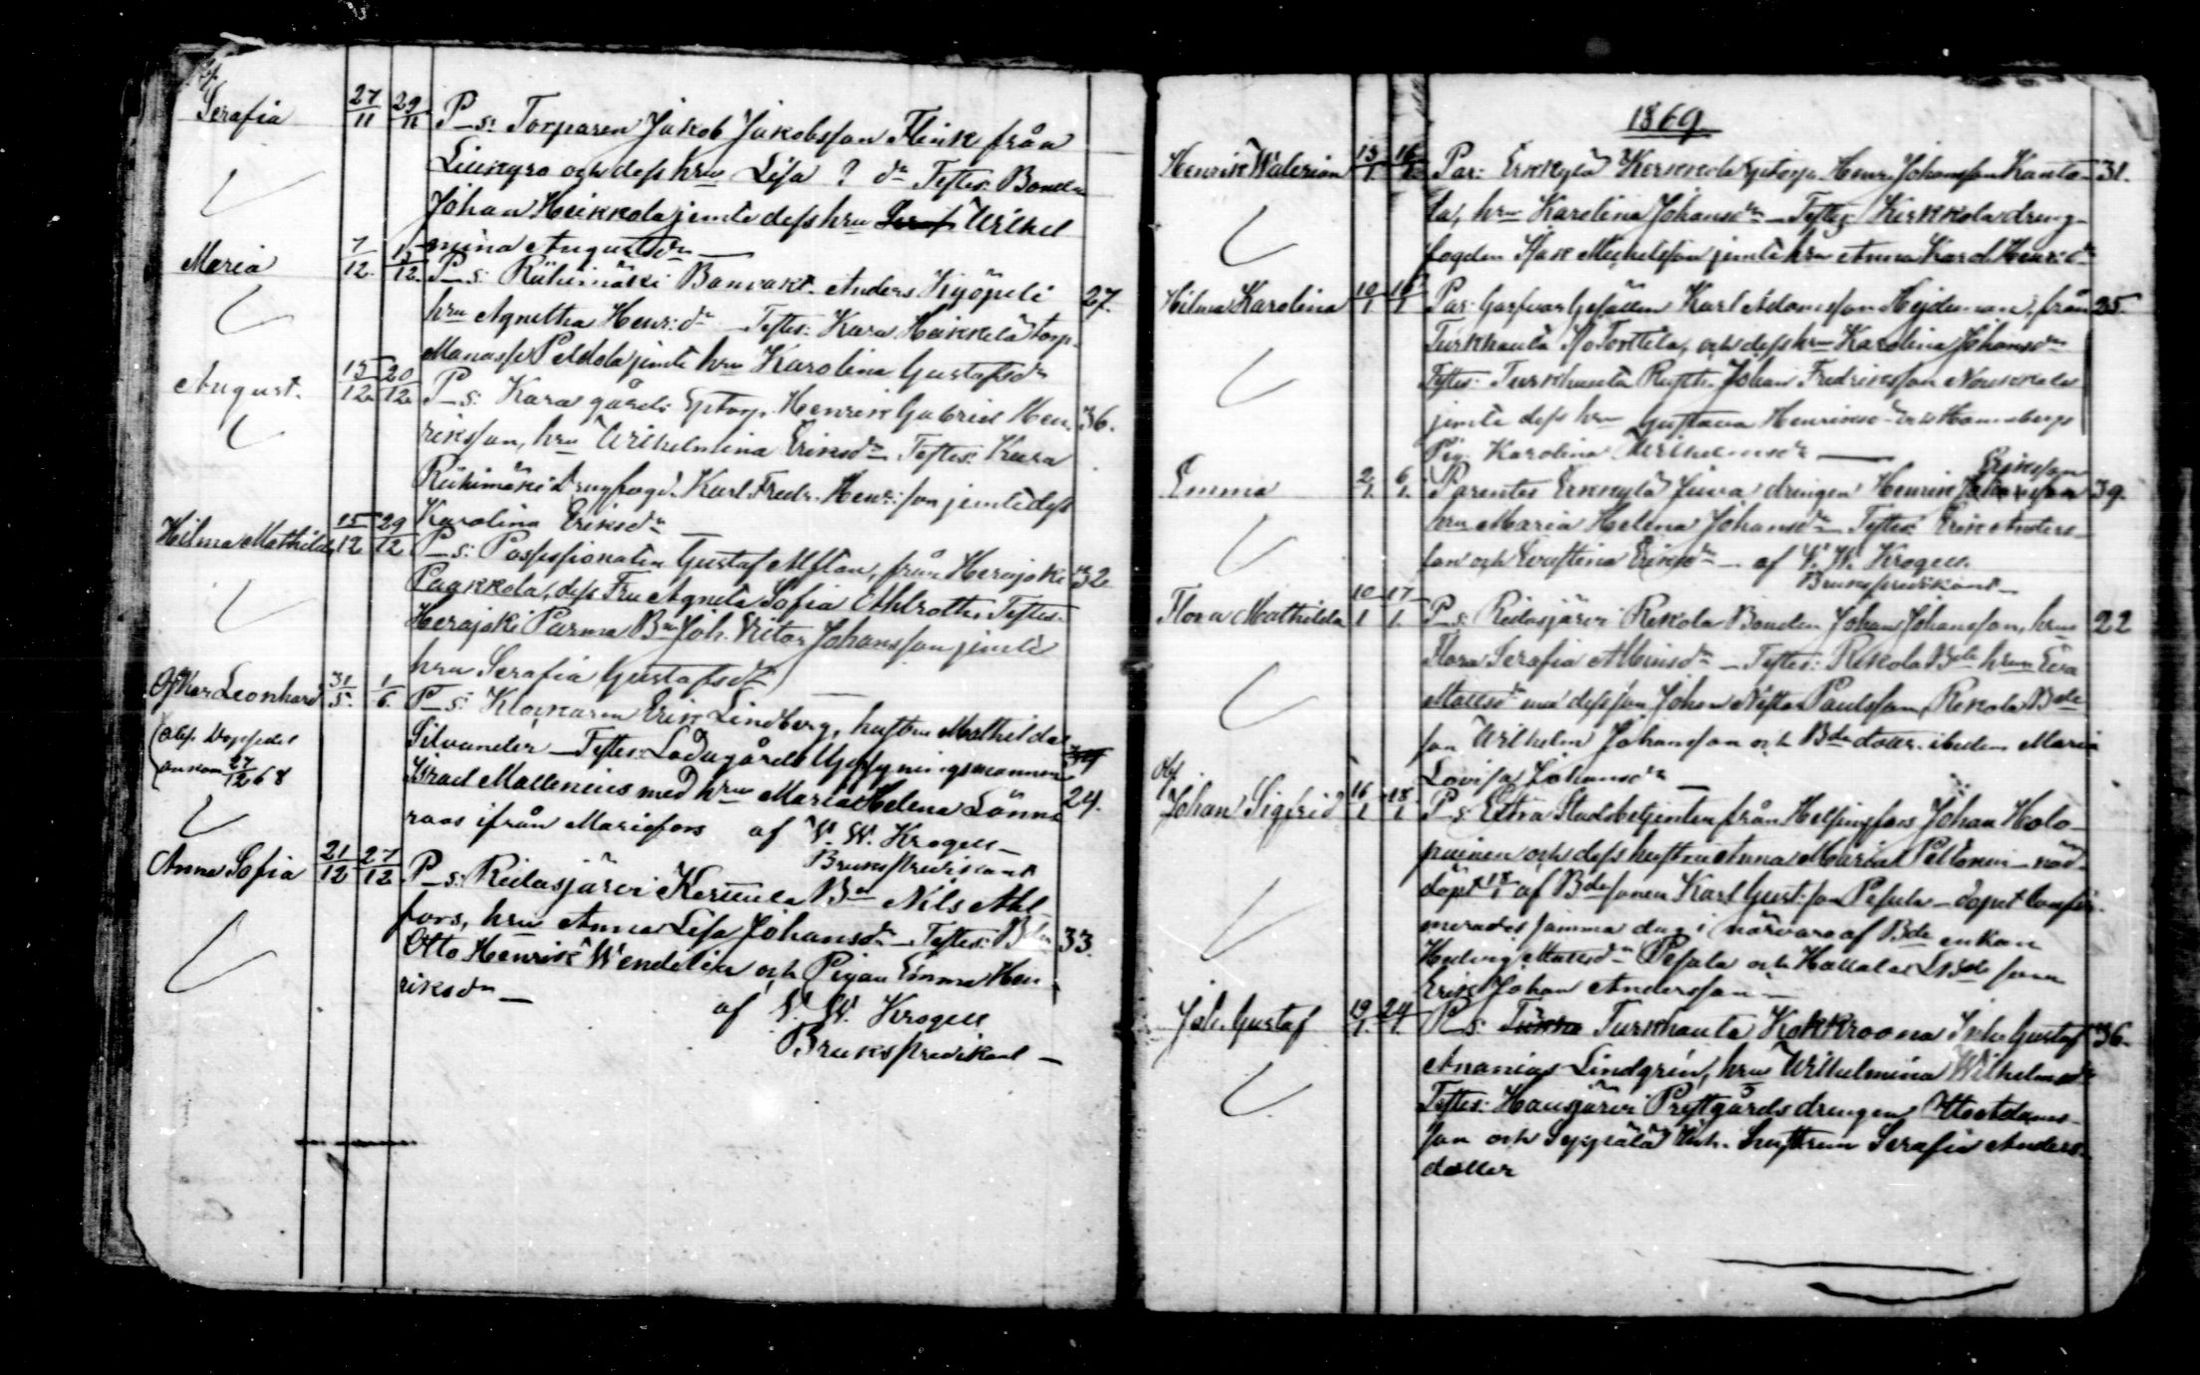 Serafia 27/11 29/11 P_s: Torparen Jakob Jakobsson Flink från
Liukyro och dess hru Lisa ? dr Testes: Bonden
Johan Heikkola jemte dess hru Vilhel
mina Augustdr
Maria 7/12. 13/12. P_s: Riihimäki Banvakt. Anders Kyöpeli 27.
hru Agnetha Henr:dr Testes: Kara Heikkilä torp.
Manasse Peldola jemte hru Karolina Gustafsdr
August. 15/12 20/12 P_s: Kara gårds Torp. Henrik Gabriel Hen- 36.
riksson, hru Wilhelmina Eriksdr Testes: Kara
Riihimäki drengfogd. Karl Fredr. Henr:son jemte dess
Karolina Eriksdr
Hilma Mathilda 15/12 29/12 P_s: Possessionaten Gustaf Alftan, från Herajoki 32
Paakkola, dess Fru Agneta Sofia Ahlroth. Testes:
Herajoki Parma Bn Joh. Viktor Johansson jemte
hru Serafia Gustafsdr
Oskar Leonhard 31/5. 1/6. P_s: Klockaren Erik Lindberg, hustru Mathilda
Silvander _ Testes: Ladugårds
ankom 27/12 68 Israel Mallenius med hru Maria Helena Lönn 24.
roos ifrån Mariefors af V. W. Krogell
Brukspredikant
Anna Sofia 21/12 27/12 P_s: Riilasjärvi Kerttula Bn Nils Ahl
fors, hru Anna Lisa Johansdr _ Testes: Bdn 33.
Otto Henrik Wendelin och Pigan Emma Hen
riksdr _
af V. W. Krogell
Brukspredikant _
1869
Henrik Walerian 13/1 16/1 Par: Erkkylä Kerkkola torp. Henr. Johansson Kanto- 31.
la, hru Karolina Johansdr _ Testes: Kerkkola dreng-
fogden Isak Michelsson jemte hru Anna Karol. Henr:dr
Hilma Karolina 10/1 16/1 Par: Garfvar Gesällen Karl Adamsson Hejdeman, från 25.
Turkhauta Torttila, och dess hru Karolina Johansdr
Testes: Turkhauta Rusth. Johan Fredriksson Nouskala
jemte dess hru Gustava Henriksdr
Pig. Karolina Wilhelmsdr
Emma 2/1. 6/1. Parentes Erkkylä Juva drengen Henrik Eriksson 39.
hru Maria Helena Johansdr _ Testes: Erik Anders
son och Eriksdr _ af V. W. Krogell
Brukspredikant _
Flora Mathilda 10/1 17/1. P_s: Ridasjärvi Rekola Bonden Johan Johansson, hru 22
Flora Serafia Albinsdr _ Testes: Rekola Bde hrun Eva
Mattsdr med dess son Johan Nestor Paulsson, Rekola Bde
son Wilhelm Johansson och Bde dotter ibidem Maria
Lovisa Johansdr
Johan Sigfrid 16/1 18/1 P_s: Extra Stadsbetjenten från Helsingfors Johan Kolo-
puinen och dess hustru Anna Maria Peltonen _ nöd
döpt 18/1 af Bde sonen Karl Gust:son Pesula _ dopet confir-
merades samma dag i närvaro af Bde enkan
Hedvig Mattsdr Pesala och Hattala Bde sonen
Erik Johan Andersson _
Joh. Gustaf 19/1. 24/1. P_s: Turkhauta Kokkroona Inh. Gustaf 36.
Ananias Lindgrén, hru Wilhelmina Wilhelmsdr
Testes: Hausjärvi Prestgårds drengen Otto Adams-
son och Syrjälä Inh. hustrun Serafia Anders-
dotter